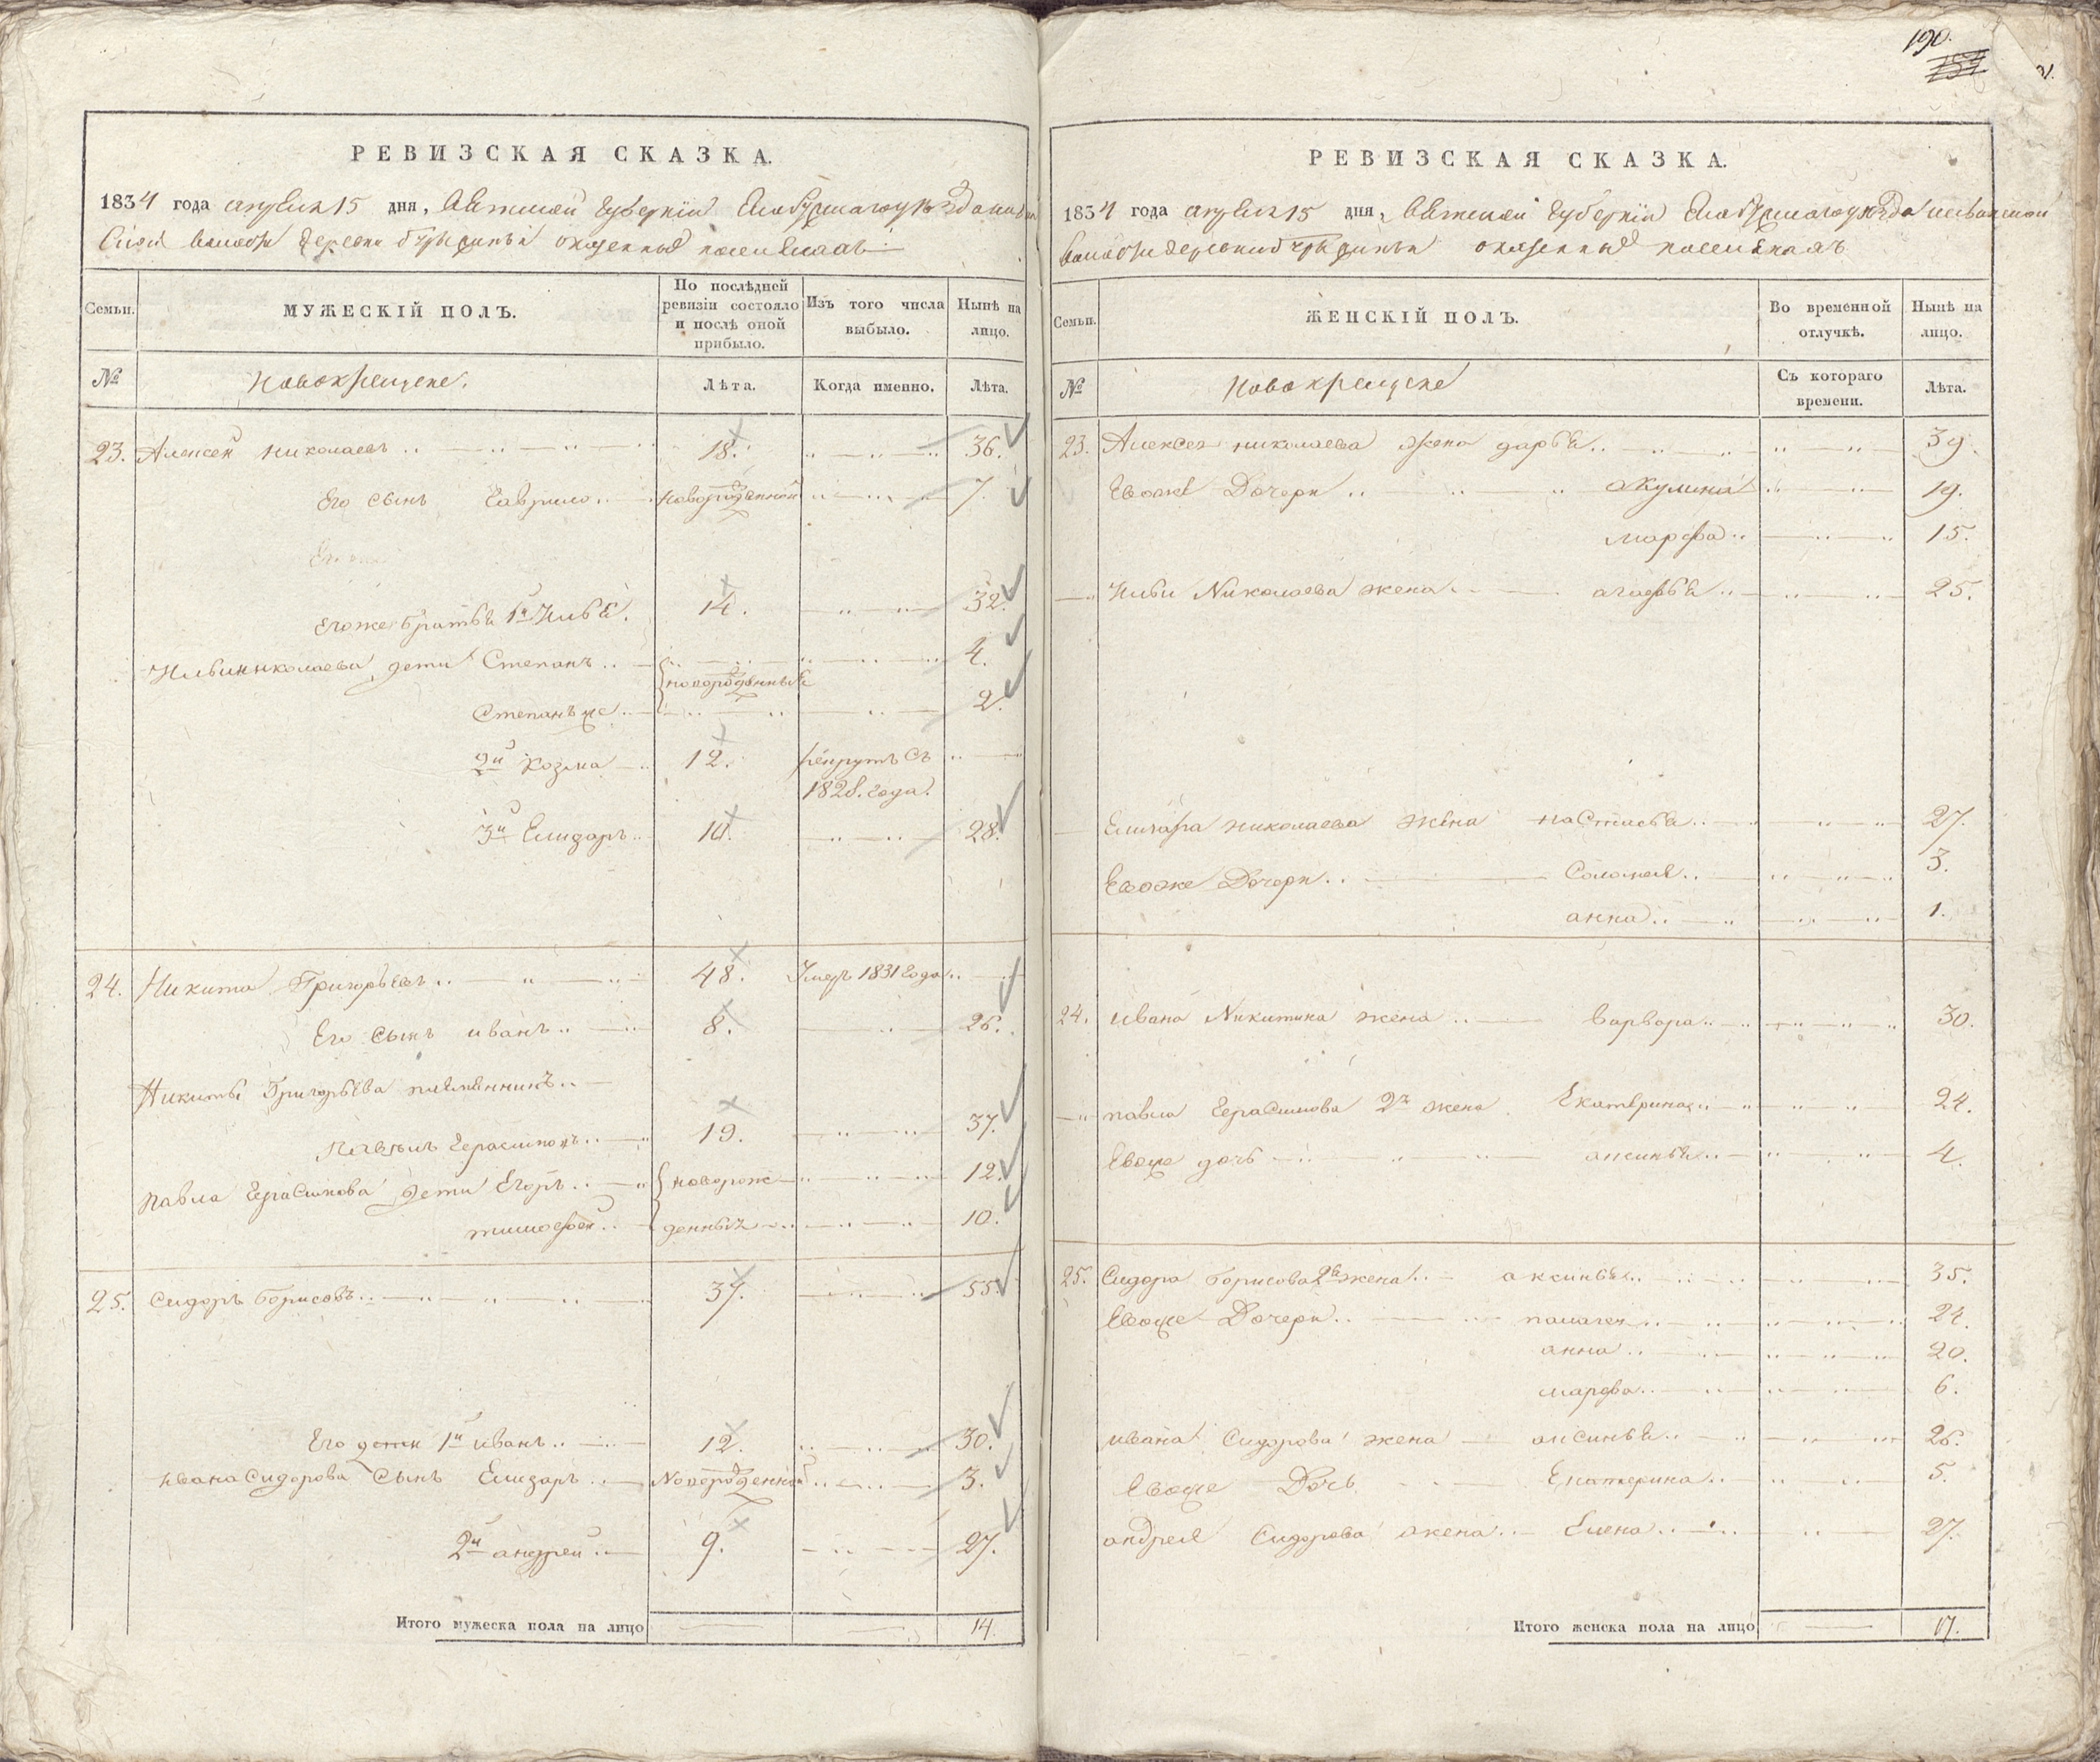 РЕВИЗСКАЯ СКАЗКА.
1834 года апреля 15 дня, Вятской губернiи Елабужскаго уезда
волости деревни о казенных поселянахъ
Семьи.
МУЖЕСКIЙ ПОЛЪ.
По послѣдней ревизiи состояло и послѣ оной прибыло.
Изъ того числа выбыло.
Нынѣ на лицо.
№
Новокрещене.
Лѣта.
Когда именно.
Лѣта.
23. Алексей Николаевъ 18. 36.
Его сынъ Гаврило новорожденной 7.
Его же братья 1й Илья. 14. 32.
Ильи Николаева дети Степанъ 4.
новорожденные
Степанъ же 2.
2й Козма 12. рекрутъ съ
1828. года.
3й Елизаръ 10. 28.
24. Никита Григорьевъ 48. Умеръ 1831 года
Его сынъ иванъ 8. 26.
Никиты Григорьева племянникъ
Павелъ Герасимовъ 19. 37.
Павла Герасимова дети Егоръ новорож 12.
тимофей денных 10.
25. Сидоръ Борисовъ 37. 55.
Его дети 1й иванъ 12. 30.
ивана Сидорова Сынъ Елизаръ Новорожденной 3.
2й андрей 9. 27.
Итого мужеска пола на лицо 14.
190.
РЕВИЗСКАЯ СКАЗКА.
1834 года апреля 15 дня, Вятской губернiи Елабужскаго уезда
волости деревни о казенных поселянахъ
Семьи.
ЖЕНСКIЙ ПОЛЪ.
Во временной отлучкѣ.
Нынѣ на лицо.
№
Новокрещене
Съ котораго времени.
Лѣта.
23. Алексея николаева жена дарья 39.
Ево же Дочери акулина 19.
марфа 15.
Ильи Николаева жена агафья 25.
Елизара николаева жена настасья 27.
Евоже Дочери Соломея 3.
анна 1.
24. ивана Никитина жена варвара 30.
павла Герасимова 2я жена Екатерина 24.
Евоже дочь аксинья 4.
25. Сидора Борисова 2я жена аксинья 35.
Евоже Дочери палагея 24.
анна 20.
марфа 6.
ивана Сидорова жена аксинья 26.
Евоже Дочь Екатерина 5.
андрея Сидорова жена Елена 27.
Итого женска пола на лицо 17.